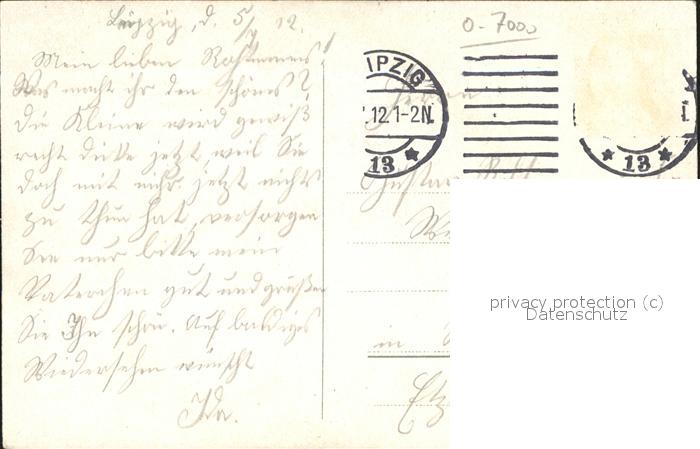 Leipzig, d. 5/7 12.
Mein lieben
Was macht ihr denn schönes?
Die Kleine wird gewiß
recht dicke jetzt, weil Sie
doch mit mir jetzt nichts
zu thun hat, versorgen
Sie nur bitte mein
Vaterchen gut und grüßen
Sie Ihn schön. Auf baldiges
Wiedersehn wünscht
Ida.
0-7000
IPZIG
12.1-2N.
* 13 *
* 13 *
Herrn
Gustav
in
privacy protection (c)
Datenschutz